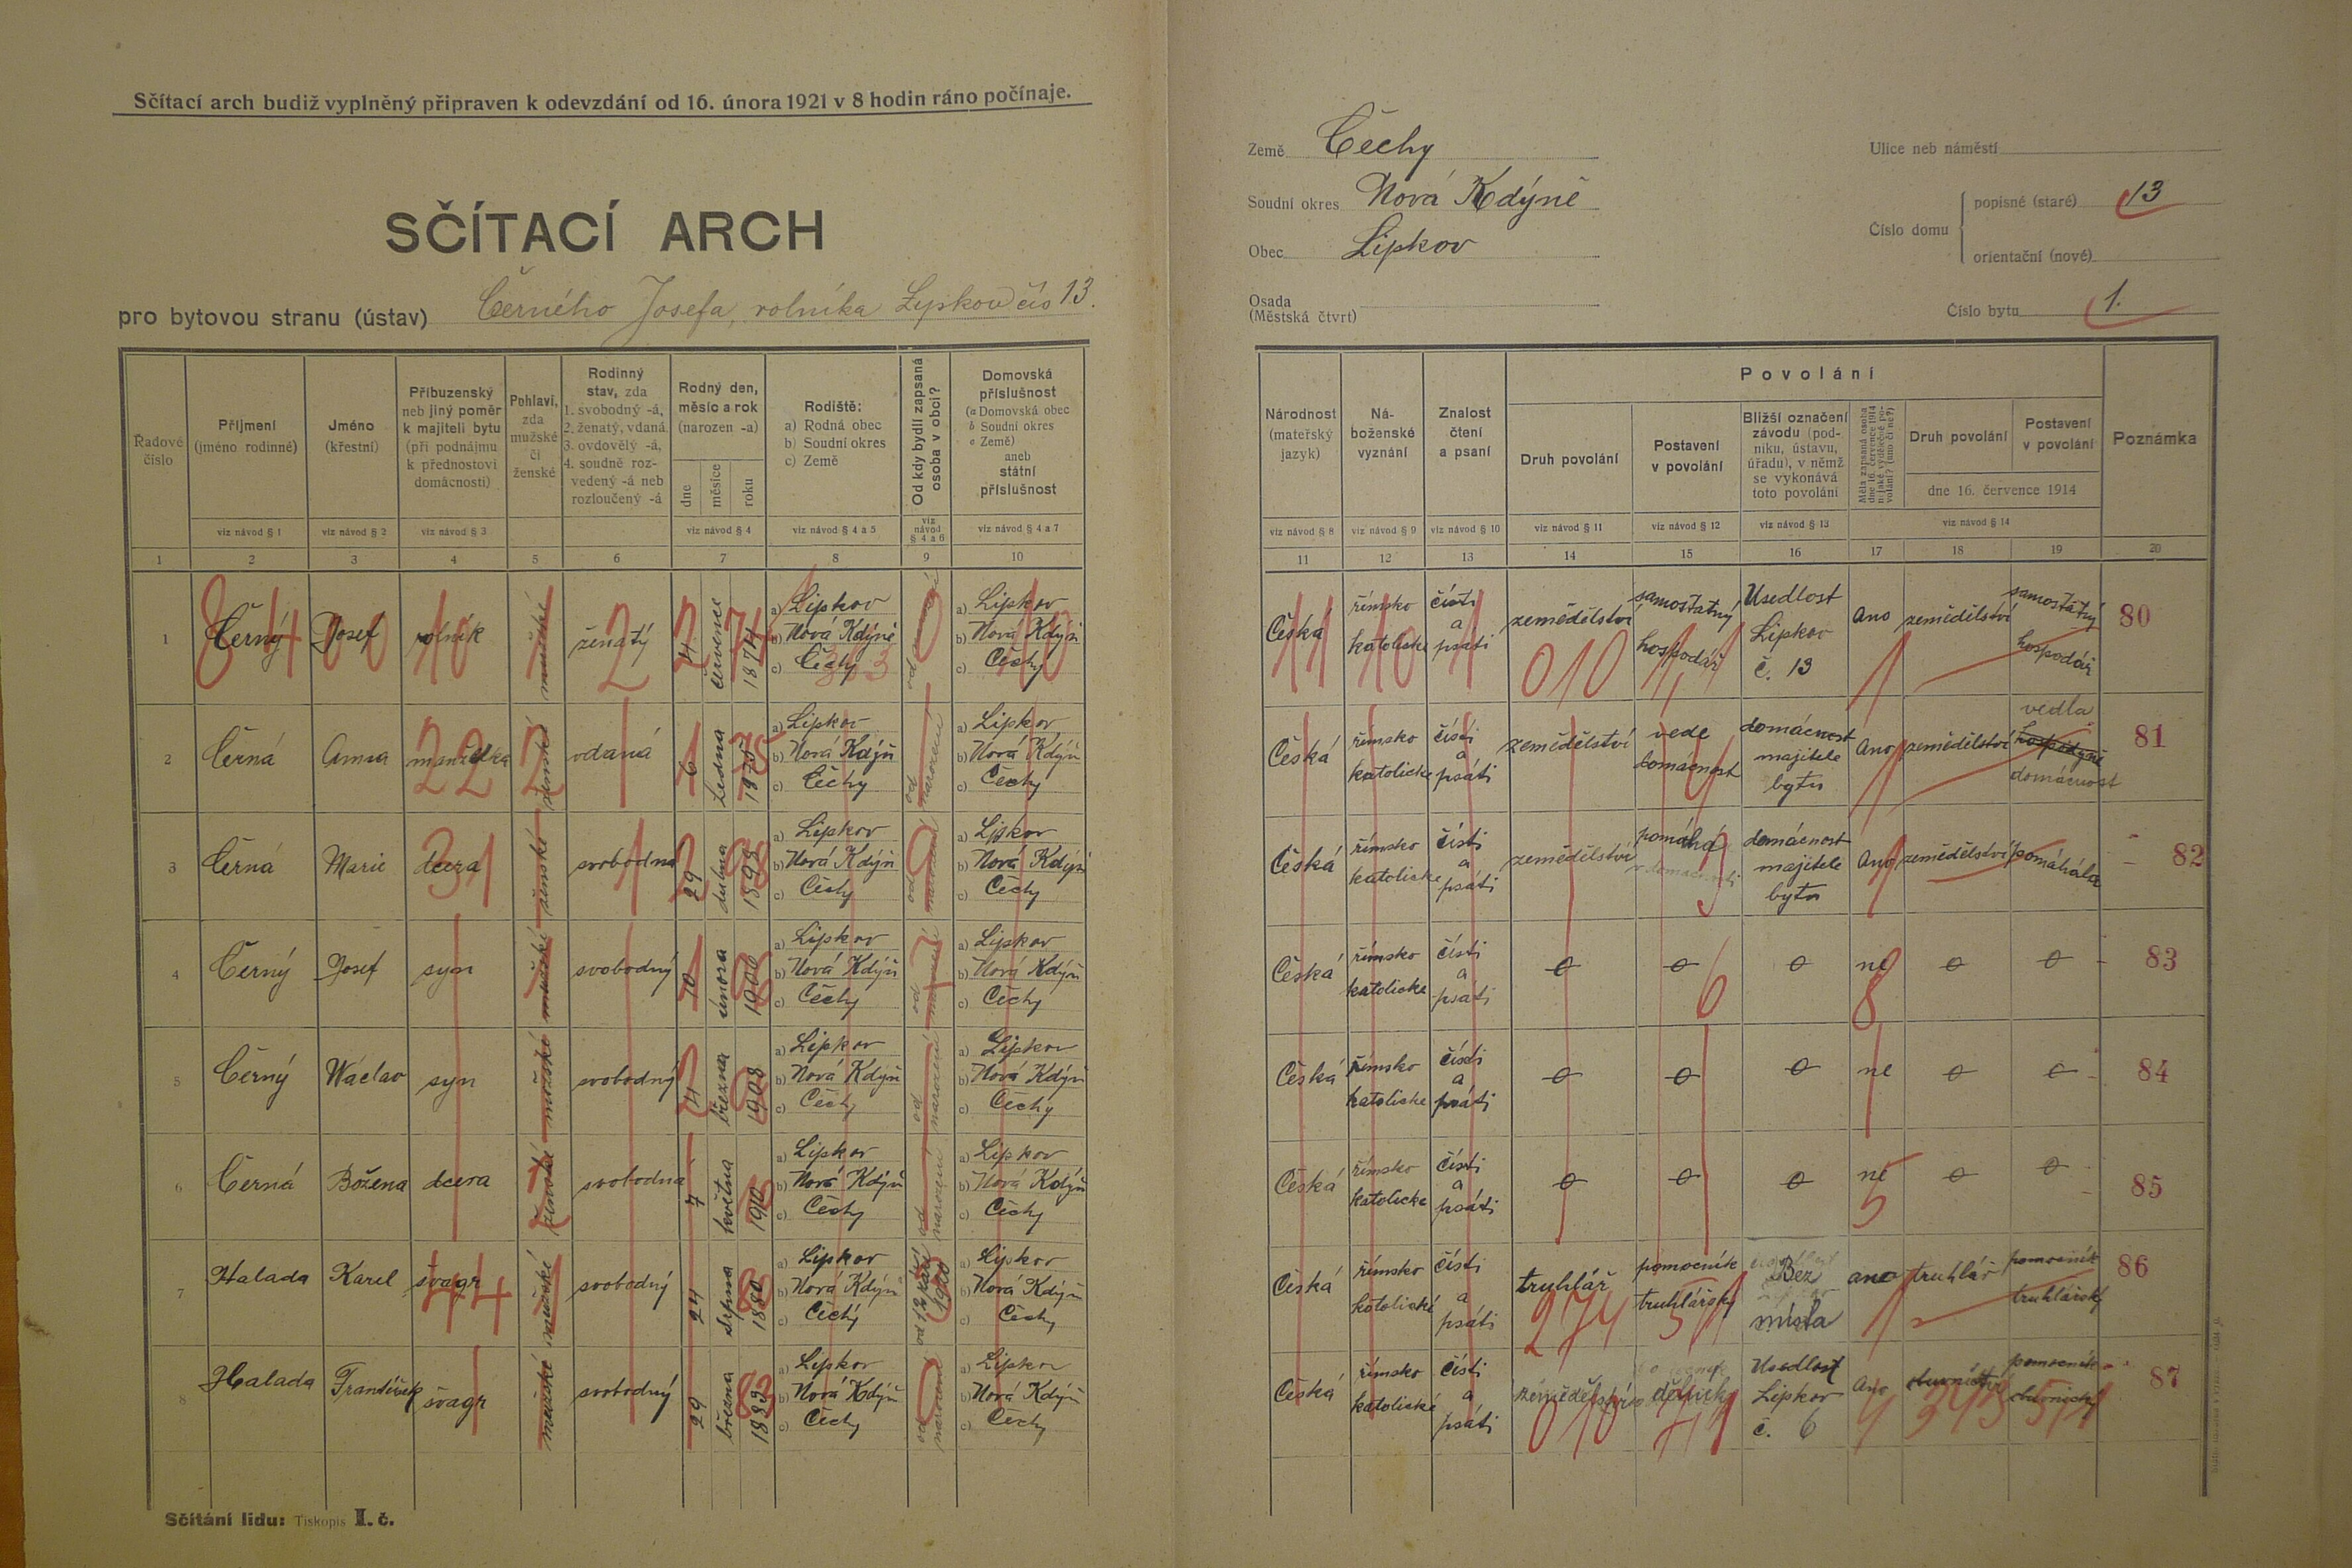 Sčítací arch budiž vyplněný připraven k odevzdání od 16. února 1921 v 8 hodin ráno počínaje.
SČÍTACÍ ARCH
pro bytovou stranu (ústav) Černého Josefa, rolníka Lypkov čís 13.
Země Čechy
Soudní okres Nová Kdýně
Obec Lipkov
Osada
(Městská čtvrt)
Ulice neb náměstí
Číslo domu
popisné (staré) 13
orientační (nové)
Číslo bytu 1.
Řadové číslo
Příjmení (jméno rodinné)
viz návod § 1
Jméno (křestní)
viz návod § 2
Příbuzenský neb jiný poměr k majiteli bytu (při podnájmu k přednostovi domácnosti)
viz návod § 3
Pohlaví, zda mužské či ženské
Rodinný stav, zda
1. svobodný -á,
2. ženatý, vdaná
3. ovdovělý -á,
4. soudně roz-
vedený -á neb
rozloučený -á
Rodný den, měsíc a rok (narozen -a)
dne měsíce roku
viz návod § 4
Rodiště:
a) Rodná obec
b) Soudní okres
c) Země
viz návod § 4 a 5
Od kdy bydlí zapsaná osoba v obci?
viz návod § 4 a 6
Domovská příslušnost
(a Domovská obec
b Soudní okres
c Země)
aneb
státní příslušnost
viz návod § 4 a 7
Národnost (mateřský jazyk)
viz návod § 8
Ná-
boženské
vyznání
viz návod § 9
Znalost čtení a psaní
viz návod § 10
Povolání
Druh povolání
viz návod § 11
Postavení v povolání
viz návod § 12
Bližší označení
závodu (pod-
niku, ústavu,
úřadu), v němž
se vykonává
toto povolání
viz návod § 13
Měla zapsaná osoba dne 16. července 1914 nějaké výdělečné po-
volání? (ano či ne?)
Druh povolání
Postavení v povolání
dne 16. července 1914
viz návod § 14
Poznámka
1 2 3 4 5 6 7 8 9 10
11 12 13 14 15 16 17 18 19 20
1 Černý Josef rolník mužské ženatý 4 července 1874 a) Lipkov b) Nová Kdýně c) Čechy od narození a) Lipkov b) Nová Kdýň c) Čechy
Česká římsko katolické čísti a psáti zemědělství samostatný hospodář Usedlost Lipkov č. 13 Ano zemědělství samostatný hospodář 80
2 Černá Anna manželka ženské vdaná 6 Ledna 1875 a) Lipkov b) Nová Kdýň c) Čechy od narození a) Lipkov b) Nová Kdýň c) Čechy
Česká římsko katolické čísti a psáti zemědělství vede domácnost domácnost majitele bytu Ano zemědělství vedla hospodyně domácnost 81
3 Černá Marie dcera ženské svobodna 29 dubna 1898 a) Lipkov b) Nová Kdýň c) Čechy od narození a) Lipkov b) Nová Kdýň c) Čechy
Česká římsko katolicke čísti a psáti zemědělství pomáhá v domácnosti domácnost majitele bytu Ano zemědělství pomáhála 82
4 Černý Josef syn mužské svobodný 10 února 1906 a) Lipkov b) Nová Kdýň c) Čechy od narození a) Lipkov b) Nová Kdýň c) Čechy
Česká římsko katolicke čísti a psáti 0 0 0 ne 0 0 83
5 Černý Wáclav syn mužské svobodný 4 března 1908 a) Lipkov b) Nová Kdýň c) Čechy od narození a) Lipkov b) Nová Kdýň c) Čechy
Česká římsko katolicke čísti a psáti 0 0 0 ne 0 0 84
6 Černá Božena dcera ženské svobodna 7 května 1910 a) Lipkov b) Nová Kdýň c) Čechy od narození a) Lipkov b) Nová Kdýň c) Čechy
Česká římsko katolicke čísti a psáti 0 0 0 ne 0 0 85
7 Halada Karel švagr mužské svobodný 24 srpna 1880 a) Lipkov b) Nová Kdýň c) Čechy a) Lipkov b) Nová Kdýň c) Čechy
Česká římsko katolické čísti a psáti truhlář pomocník truhlářský Bez místa ano truhlář pomocník truhlářský 86
8 Halada František švagr mužské svobodný 29 března 1883 a) Lipkov b) Nová Kdýň c) Čechy od narození a) Lipkov b) Nová Kdýň c) Čechy
Česká římsko katolické čísti a psáti dělnický Usedlost Lipkov č. 6 Ano pomocník 87
Sčítání lidu: Tiskopis I. č.